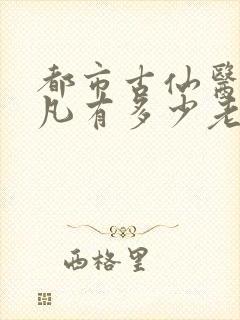 都市古仙醫
凡有多少老
西格里